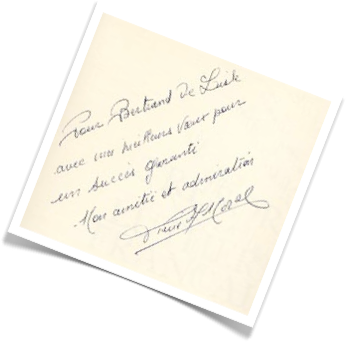 Pour Bertrand de Luile
avec mes meilleurs vœux pour
un succès garanti
Mon amitié et admiration